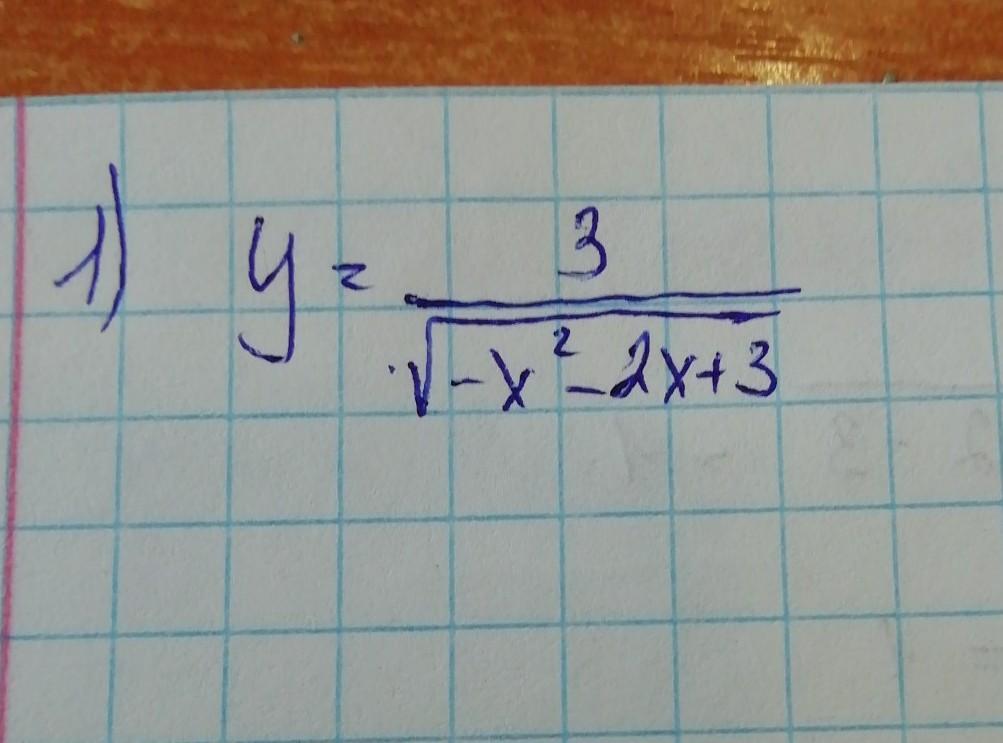 1) y = 3 / √(-x² - 2x + 3)